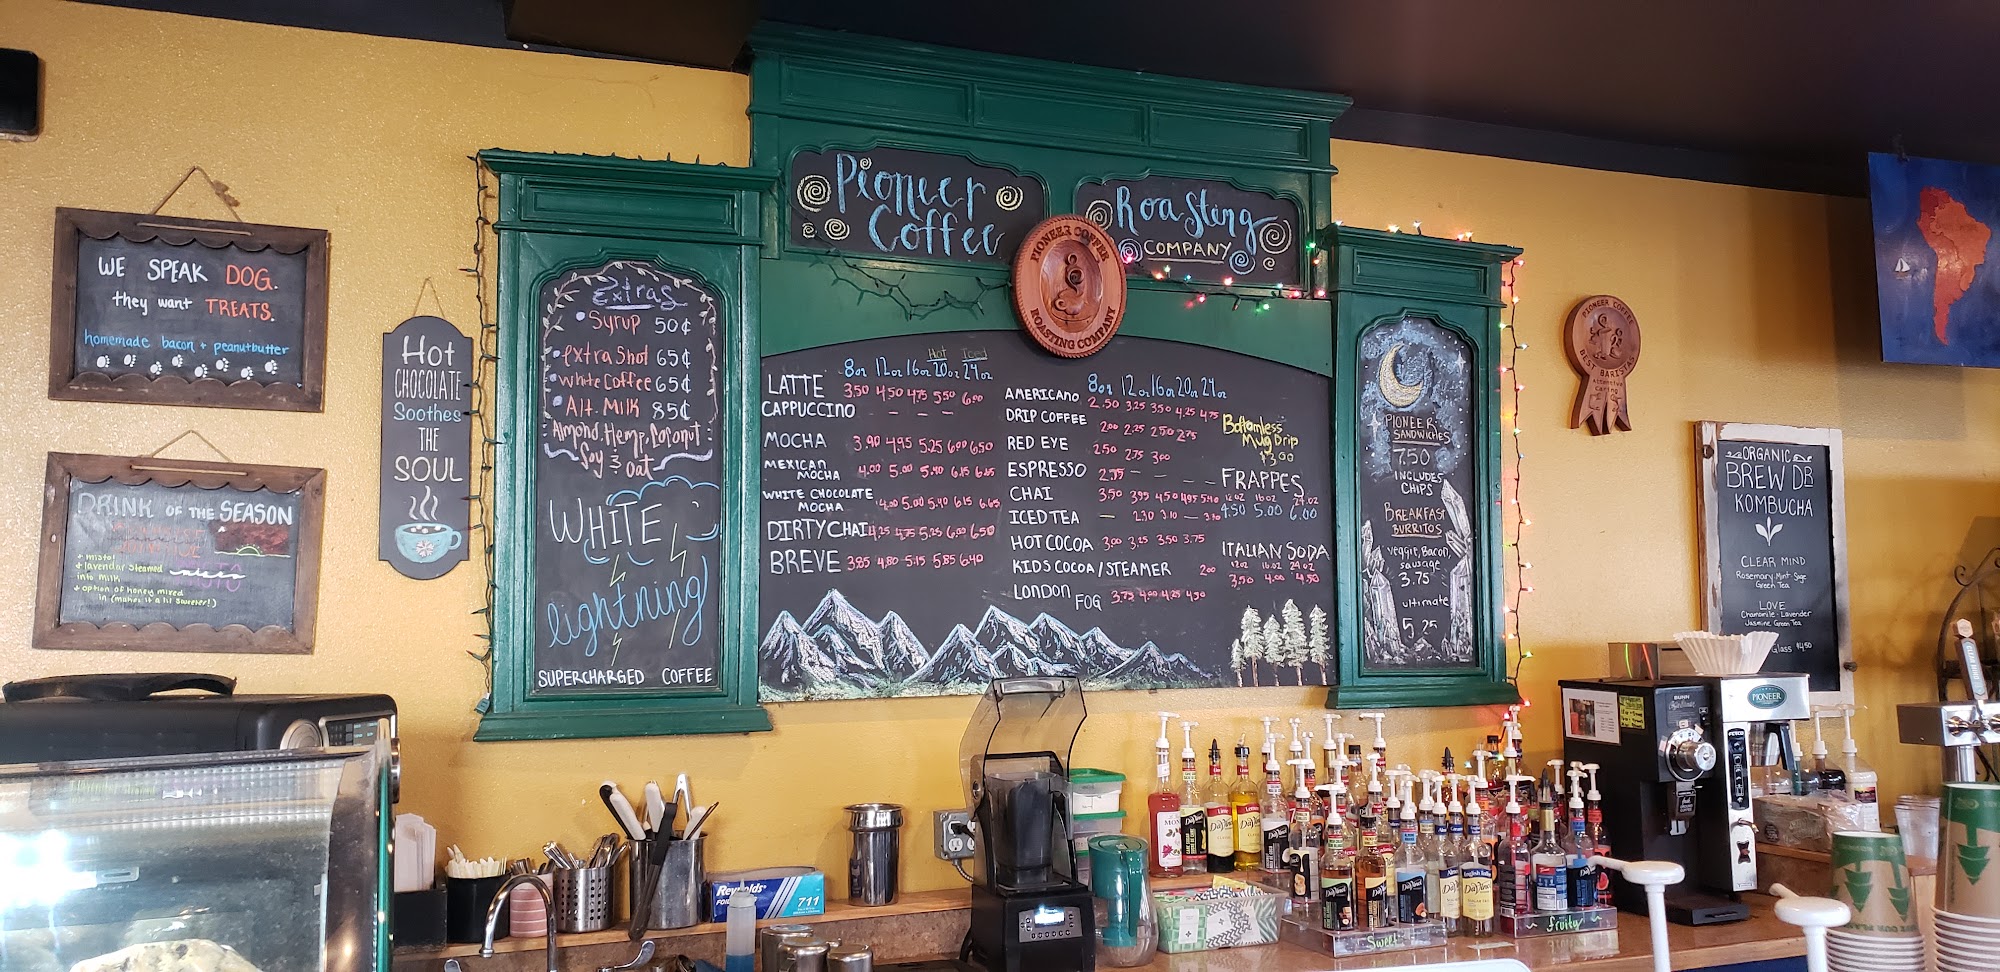 WE SPEAK DOG.
they want TREATS.
homemade bacon + peanutbutter
DRINK OF THE SEASON
+ misto!
+ lavendar steamed
into milk
+ option of honey mixed
in (makes it a lil sweeter!)
Hot
CHOCOLATE
Soothes
THE
SOUL
Extras
• Syrup 50¢
• extra shot 65¢
• white coffee 65¢
• Alt. Milk 85¢
Almond, Hemp, Coconut
Soy & Oat
WHITE
lightning!
SUPERCHARGED COFFEE
Pioneer
Coffee
Roasting
COMPANY
PIONEER COFFEE
ROASTING COMPANY
Hot Iced
8oz 12oz 16oz 20oz 24oz
LATTE 3.50 4.50 4.75 5.50 6.00
CAPPUCCINO — — —
MOCHA 3.90 4.95 5.25 6.00 6.50
MEXICAN MOCHA 4.00 5.00 5.40 6.15 6.65
WHITE CHOCOLATE MOCHA 4.00 5.00 5.40 6.15 6.65
DIRTY CHAI 4.25 4.75 5.25 6.00 6.50
BREVE 3.85 4.80 5.15 5.85 6.40
8oz 12oz 16oz 20oz 24oz
AMERICANO 2.50 3.25 3.50 4.25 4.75
DRIP COFFEE 2.00 2.25 2.50 2.75
RED EYE 2.50 2.75 3.00
ESPRESSO 2.75 — — —
CHAI 3.50 3.95 4.50 4.95 5.40
ICED TEA — 2.30 3.10 —
HOT COCOA 3.00 3.25 3.50 3.75
KIDS COCOA / STEAMER 2.00
LONDON FOG 3.75 4.00 4.25 4.50
Bottomless
Mug Drip
$3.00
FRAPPES
12 oz 16 oz 24 oz
4.50 5.00 6.00
ITALIAN SODA
12 oz 16 oz 24 oz
3.50 4.00 4.50
PIONEER
SANDWICHES
7.50
INCLUDES
CHIPS
BREAKFAST
BURRITOS
veggie, Bacon,
sausage
3.75
ultimate
5.25
PIONEER COFFEE
BEST BARISTAS
Attentive
Caring
ORGANIC
BREW DR
KOMBUCHA
CLEAR MIND
Rosemary-Mint-Sage
Green Tea
LOVE
Chamomile-Lavender
Jasmine Green Tea
Glass $4.50
BUNN
PIONEER
FETCO
Reynolds
FOIL
711
DaVinci
DaVinci
DaVinci
DaVinci
Sweet
fruity